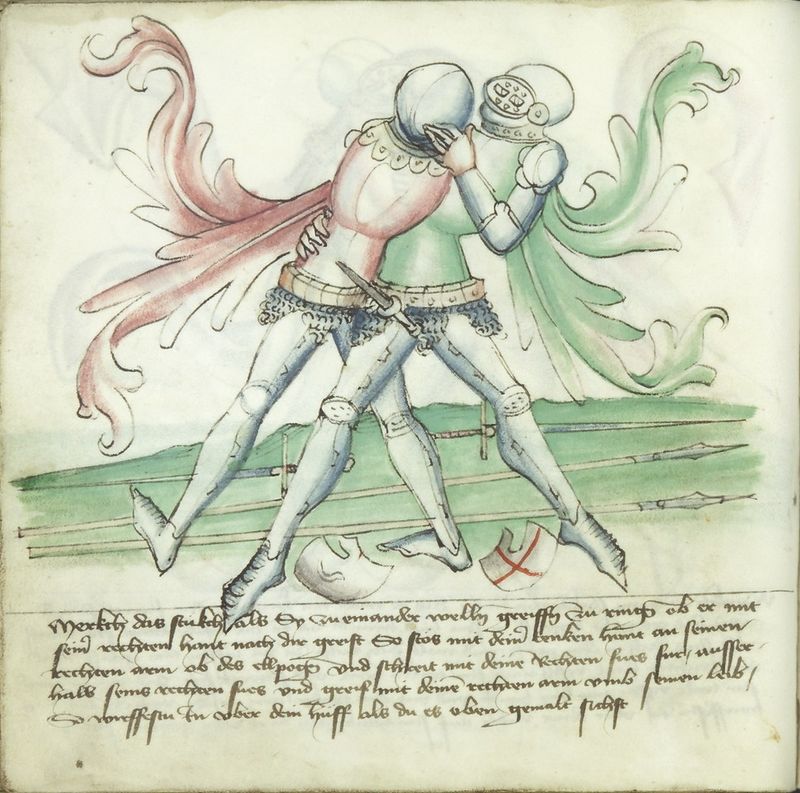 Merckch das stukch als Sy zu einander welln greiffn zu ringn ob er mit
sein rechten hant nach dir greift So stos mit dein lenken hant an seinen
rechten arm ob des ellpogn vnd schreit mit deine Rechten fues fur ausser-
halb seins rechten fues vnd greif mit deine rechten arm vmb seinen leib /
So wirffestu in vber dein huff als du es oben gemalt sichst